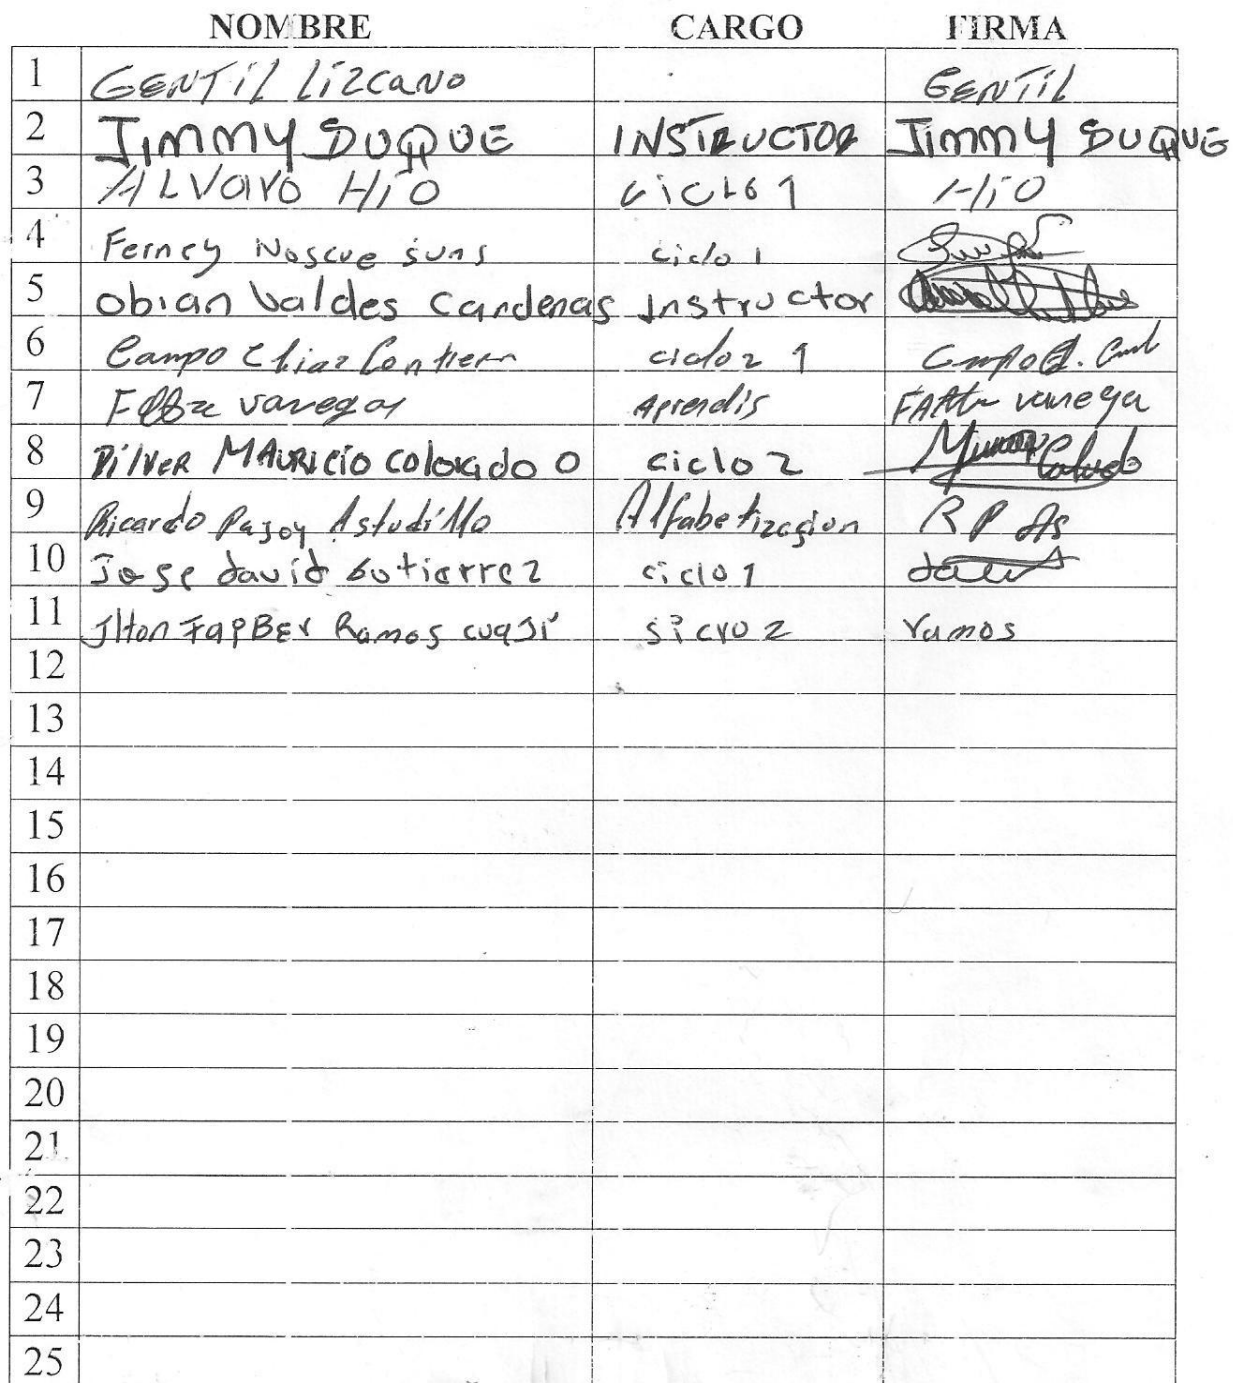 NOMBRE CARGO FIRMA
1 GENTil lizcano GENTil
2 JIMMY DUQUE INSTRUCTOR JIMMY DUQUE
3 ALVARO Hío ciclo 1 Hío
4 Ferney Noscue ciclo 1
5 Obian Valdes Cardenas Instructor
6 Campo Elias ciclo 2 1
7 vanegas Aprendis vanega
8 Dilver MAURICIO colorado O ciclo 2
9 Ricardo Pasoy Astudillo Alfabetizacion R P As
10 Jose david Gutierrez ciclo 1
11 Ramos sicro 2 Ramos
12
13
14
15
16
17
18
19
20
21
22
23
24
25